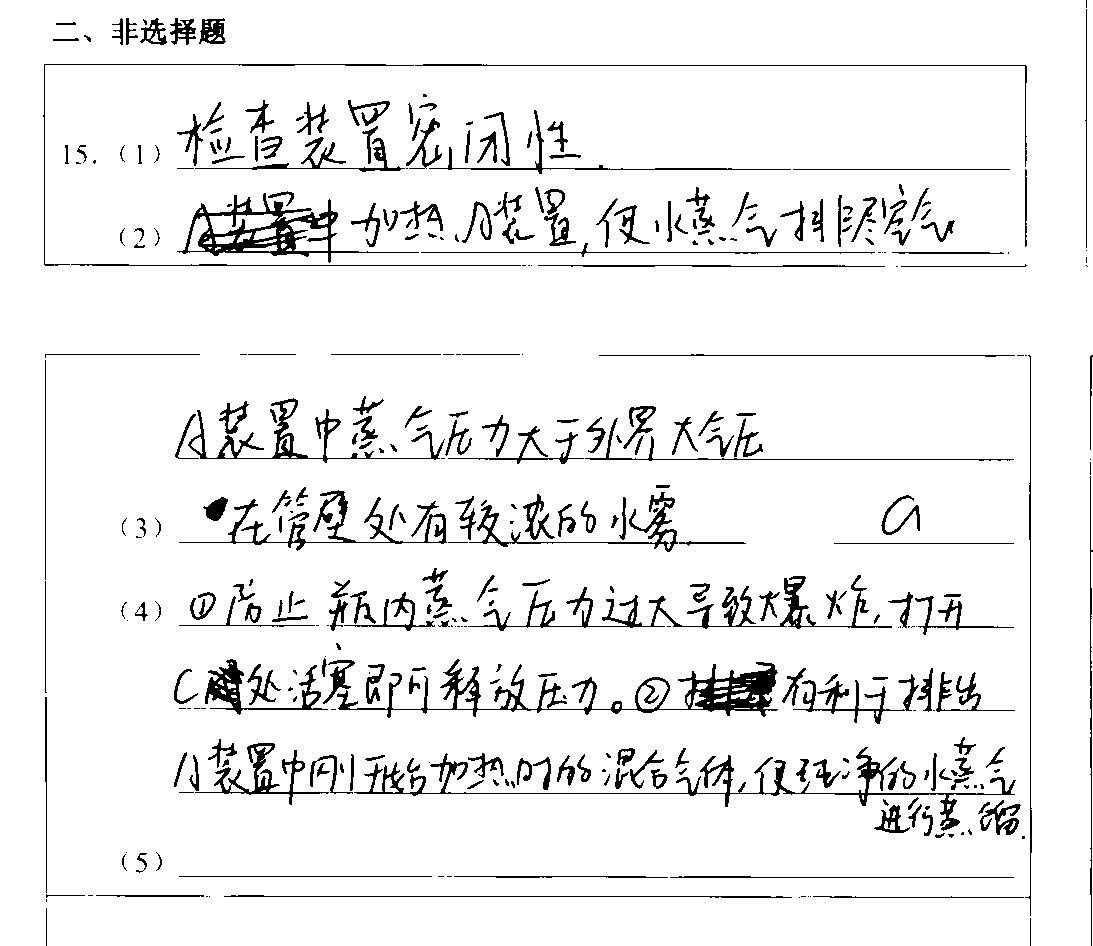 二、非选择题
15.（1）检查装置密闭性.
（2）加热A装置,使水蒸气排尽空气
A装置中蒸气压力大于外界大气压
（3）在管壁处有较浓的水雾. a
（4）①防止瓶内蒸气压力过大导致爆炸,打开
C处活塞即可释放压力。②有利于排出
A装置中刚开始加热时的混合气体,使纯净的水蒸气
进行蒸馏.
（5）